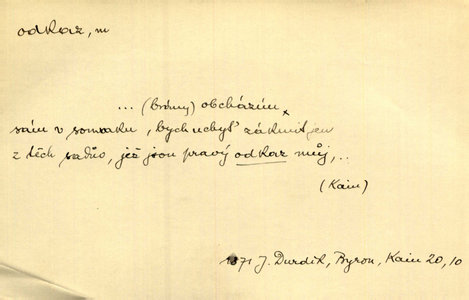 odkaz, m
... (brány) obcházím
sám v soumraku, bych uchyt' zákmit jen
z těch sadův, jež jsou pravý odkaz můj, ..
(Kain)
1871 J. Durdík, Byron, Kain 20, 10